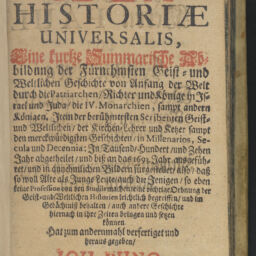 HISTORIÆ
UNIVERSALIS,
Eine kurtze Summarische Ab-
bildung der Fürnehmsten Geist- und
Weltlichen Geschichte von Anfang der Welt
durch die Patriarchen/Richter und Könige in Is-
rael und Juda/ die IV. Monarchien, sampt andern
Königen. Item der berühmtesten Scribenten Geist-
und Weltlichen/ der Kirchen-Lehrer und Ketzer sampt
den merckwürdigsten Geschichten/ in Millenarios, Se-
cula und Decennia: In Tausend/Hundert/und Zehen
Jahr abgetheilet/ und biß an das 1693. Jahr außgefüh-
ret/ und in Bildern fürgestellet/ also/ daß
so woll Alte als Junge Leute/auch die Jenigen/ so eben
keine Profession von den Studiis machen/eine richtige Ordnung der
Geist- und Weltlichen Historien leichtlich begreiffen/ und im
Gedächtniß behalten/ auch andere Geschichte
hiernach in ihre Zeiten bringen und setzen
können
Hat zum andernmahl verfertiget und
herauß gegeben/